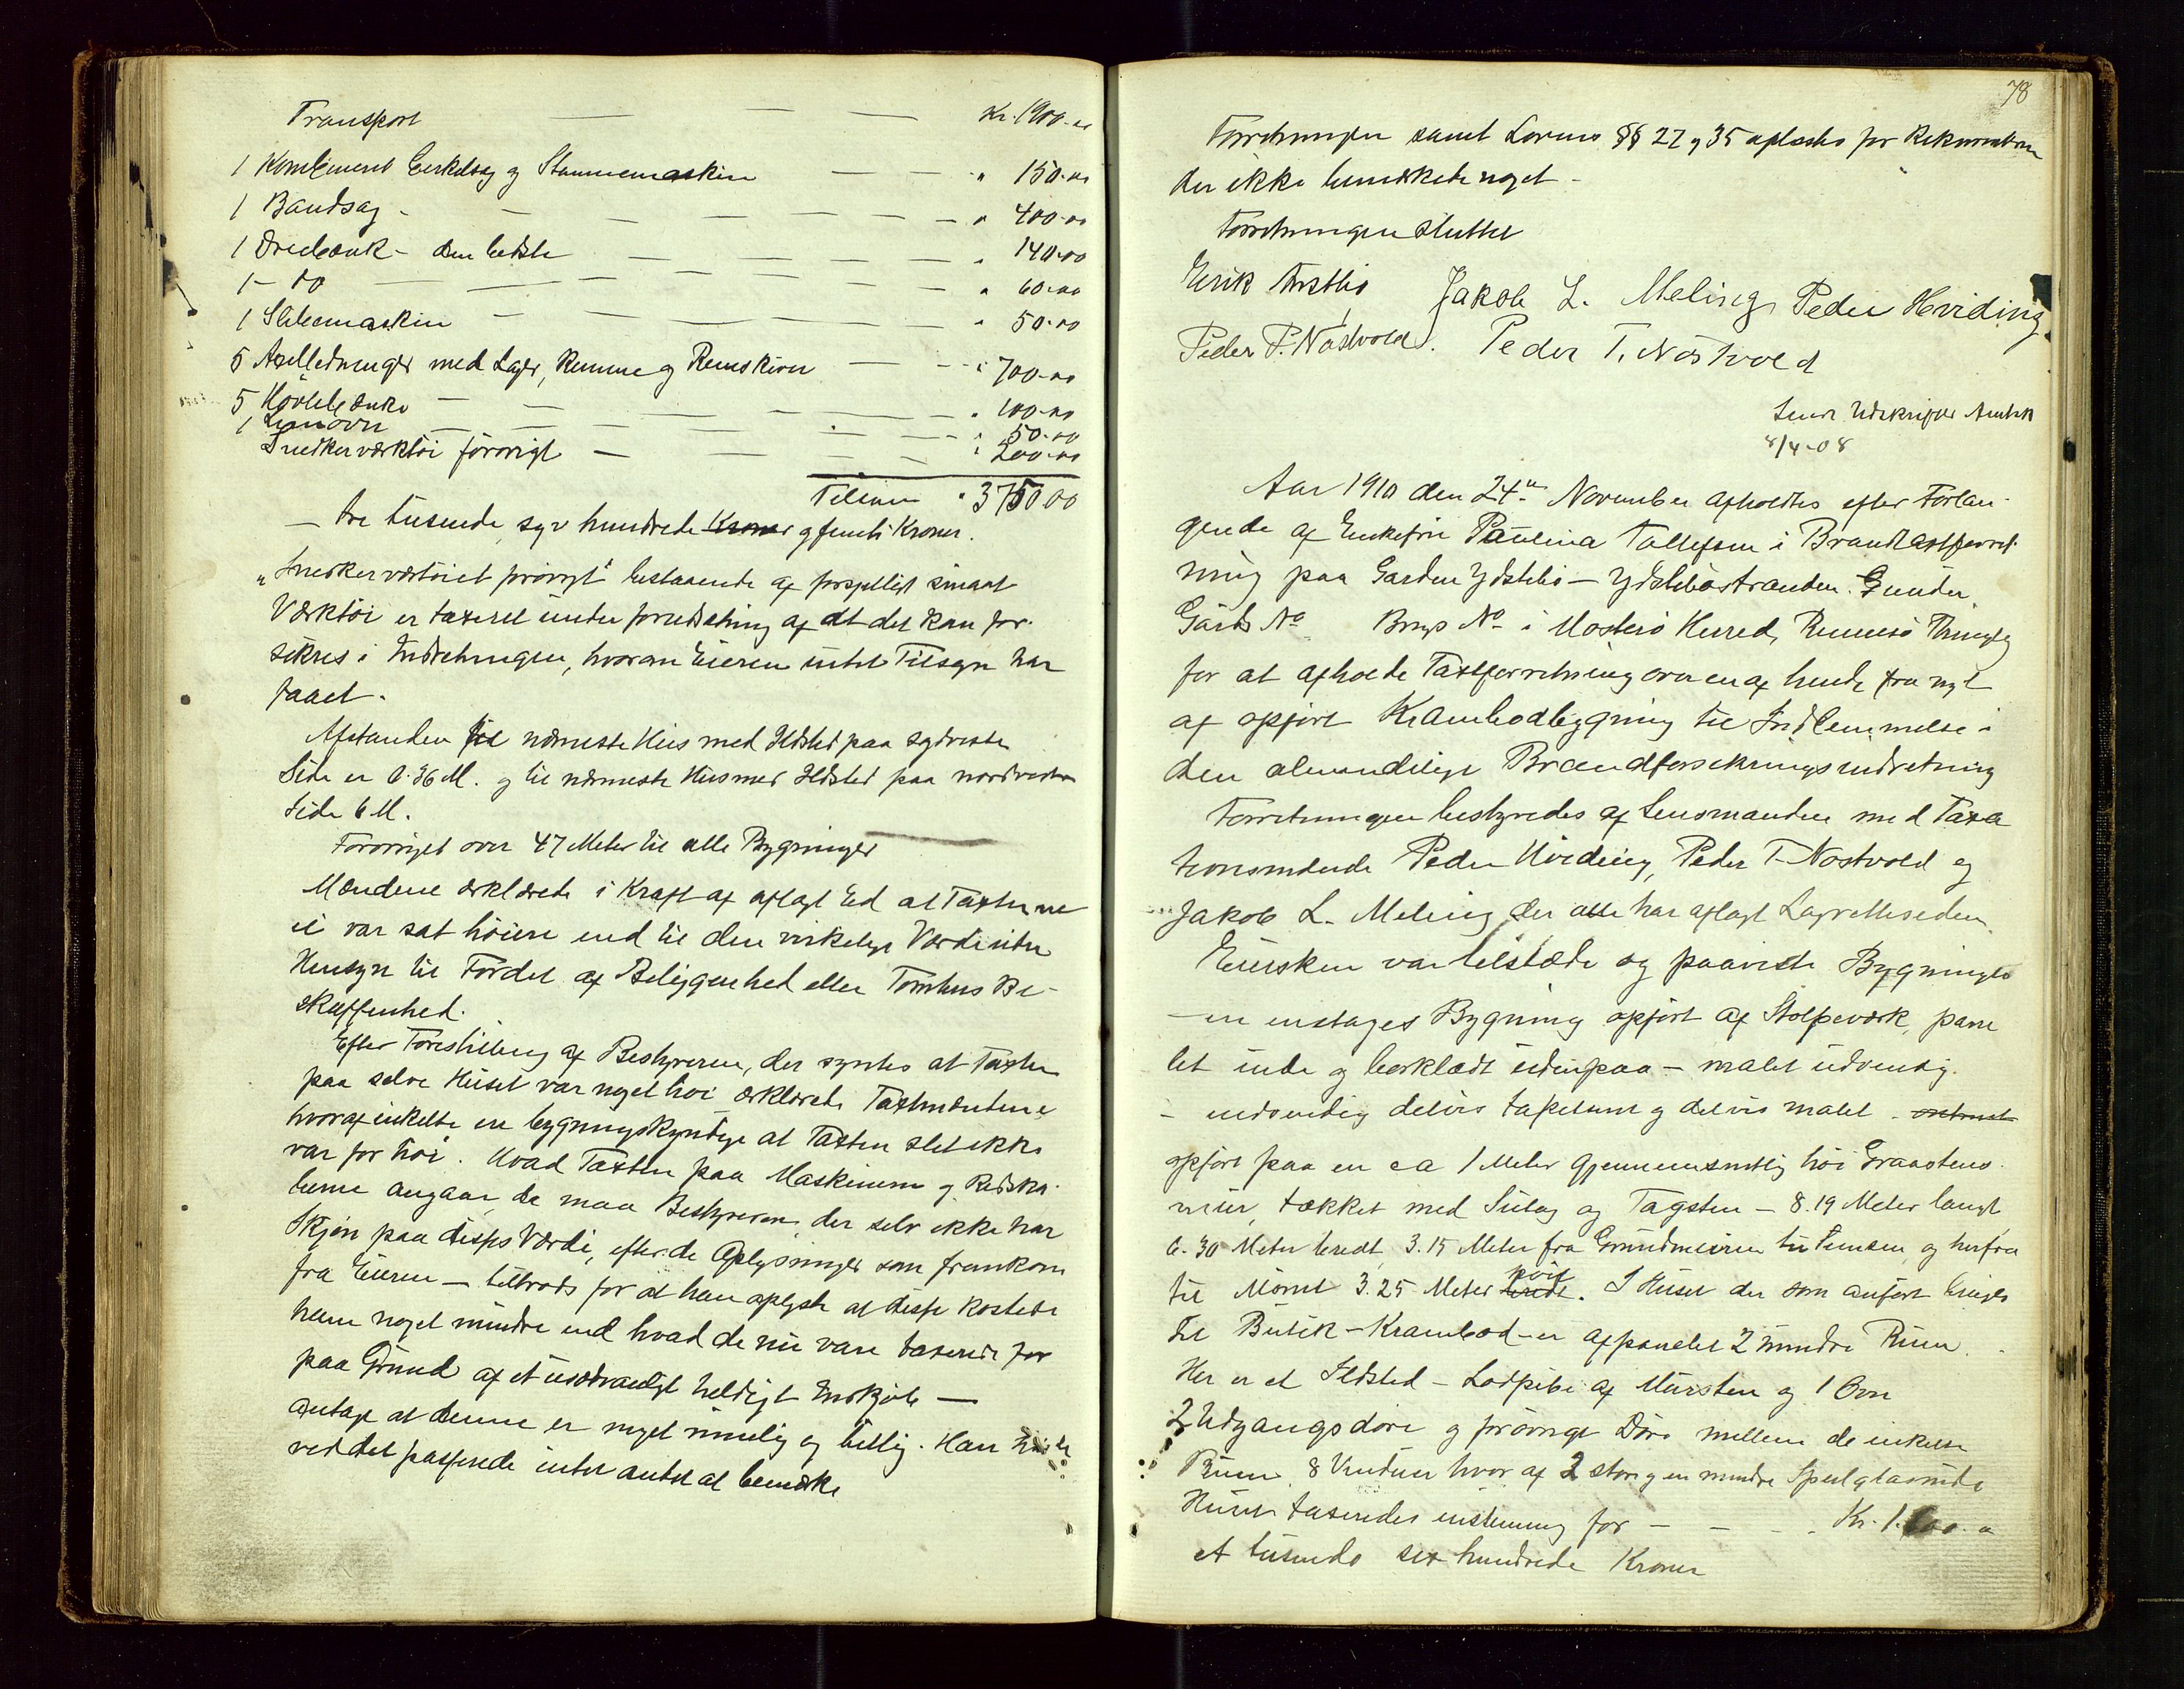 Transport — — Kr. 1900.00
1 Kombineret Cirkelsag og Stemmemaskin — — " 150.00
1 Bandsag — — — — — " 400.00
1 Dreiebænk - den bedste — — — — " 140.00
1 - do — — — — — " 60.00
1 Slibemaskin — — — — — " 50.00
5 Axelledninger med Lager, Remme og Remskiver — — " 700.00
5 Høvlebænke — — — — — " 100.00
1 Limovn — — — — — " 50.00
Snedkerværktøi forøvrigt — — — — " 200.00
Tilsam " 3750 00
— tre tusende, syv hundrede Kroner og femti Kroner.
"Snedkerværtøiet forøvrigt" bestaaende af forskjelligt smaat
Værktøi er taxeret under forudsætning af at det kan for-
sikres i Indretningen, hvorom Eieren intet Tilsagn har
faaet.
Afstanden til nærmeste Hus med Ildsted paa sydvestre
Side er 6.36 M. og til nærmeste Hus med Ildsted paa nordvestre
Side 6 M.
Forøvrigt over 47 Meter til alle Bygninger
Mændene erklærede i Kraft af aflagt Ed at Taxterne
ei var sat høiere end til den virkelige Værdi uten
Hensyn til Fordel af Beliggenhed eller Tomtens Be-
skaffenhed.
Efter Forestilling af Bestyreren, der syntes at Taxten
paa selve Huset var noget høi erklærede Taxtmændene
hvoraf enkelte ere bygningskyndige at Taxten slet ikke
var for høi. Hvad Taxten paa Maskinerne og Redska-
berne angaar, da maa Bestyreren, der selv ikke har
Skjøn paa disses Værdi, efter de Oplysninger som fremkom
fra Eieren — tiltrods for at han oplyste at disse kostede
ham noget mindre end hvad de nu vare taxerede for
paa Grund af et usædvanligt heldigt Indkjøb —
antage at denne er noget rimelig og billig. Han havde
ved det passerede intet andet at bemærke
78
Forretningen samt Lovens §§ 27 og 35 oplæstes for Rekvirenten
der ikke bemærkede noget -
Forretningen sluttet
Jakob L. Meling Peder Hæviding
Peder P. Nøstvold. Peder T. Nøstvold
Send Udskrifter Amtet
8/4-08
Aar 1910 den 24de November afholdtes efter Forlan-
gende af Enkefru Paulina Tollefsen i Brandtaxtforret-
ning paa Garden Ydstebø — Ydstebøstranden. Gunder
Gards No Brugs No i Mosterø Herred, Rennesø Thinglag
for at afholde Taxtforretning over en af hende fra nyt
af opført Krambodbygning til Indlemmelse i
den almindelige Brandforsikringsindretning
Forretningen bestyredes af Lensmanden med Taxa
tionsmændene Peder Hæviding, Peder T. Nøstvold og
Jakob L. Meling der alle har aflagt Lagrettseden
Eiersken var tilstæde og paaviste Bygningen
— en enetages Bygning opført af Stolpeværk, pane
let inde og bordklædt udenpaa — malet udvendig.
- indvendig delvis tapetseret og delvis malet -
opført paa en ca 1 Meter gjennemsnitlig høi Graastens-
mur, tækket med Sutag og Tagsten — 8.19 Meter langt
6.30 Meter bredt, 3.15 Meter fra Grundmuren til Gimsen og herfra
til Mønet 3.25 Meter bredt høit. I Huset der som anført bruges
til Butik - Krambod - er afpanelet 2 mindre Rum.
Her er et Ildsted — Lodpibe af Mursten og 1 Ovn
2 Udgangsdøre og forøvrigt Døre mellem de enkelte
Rum, 8 Vinduer hvor af 2 store og en mindre Speilglasrude
Huset taxeredes enstemmig for — — — Kr. 1.600.00
et tusende sex hundrede Kroner